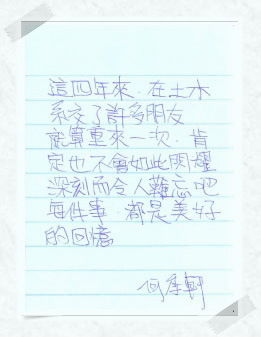 這四年來,在土木
系交了許多朋友
就算重來一次,肯
定也不會如此閃耀
深刻而令人難忘吧
每件事,都是美好
的回憶
何季軒